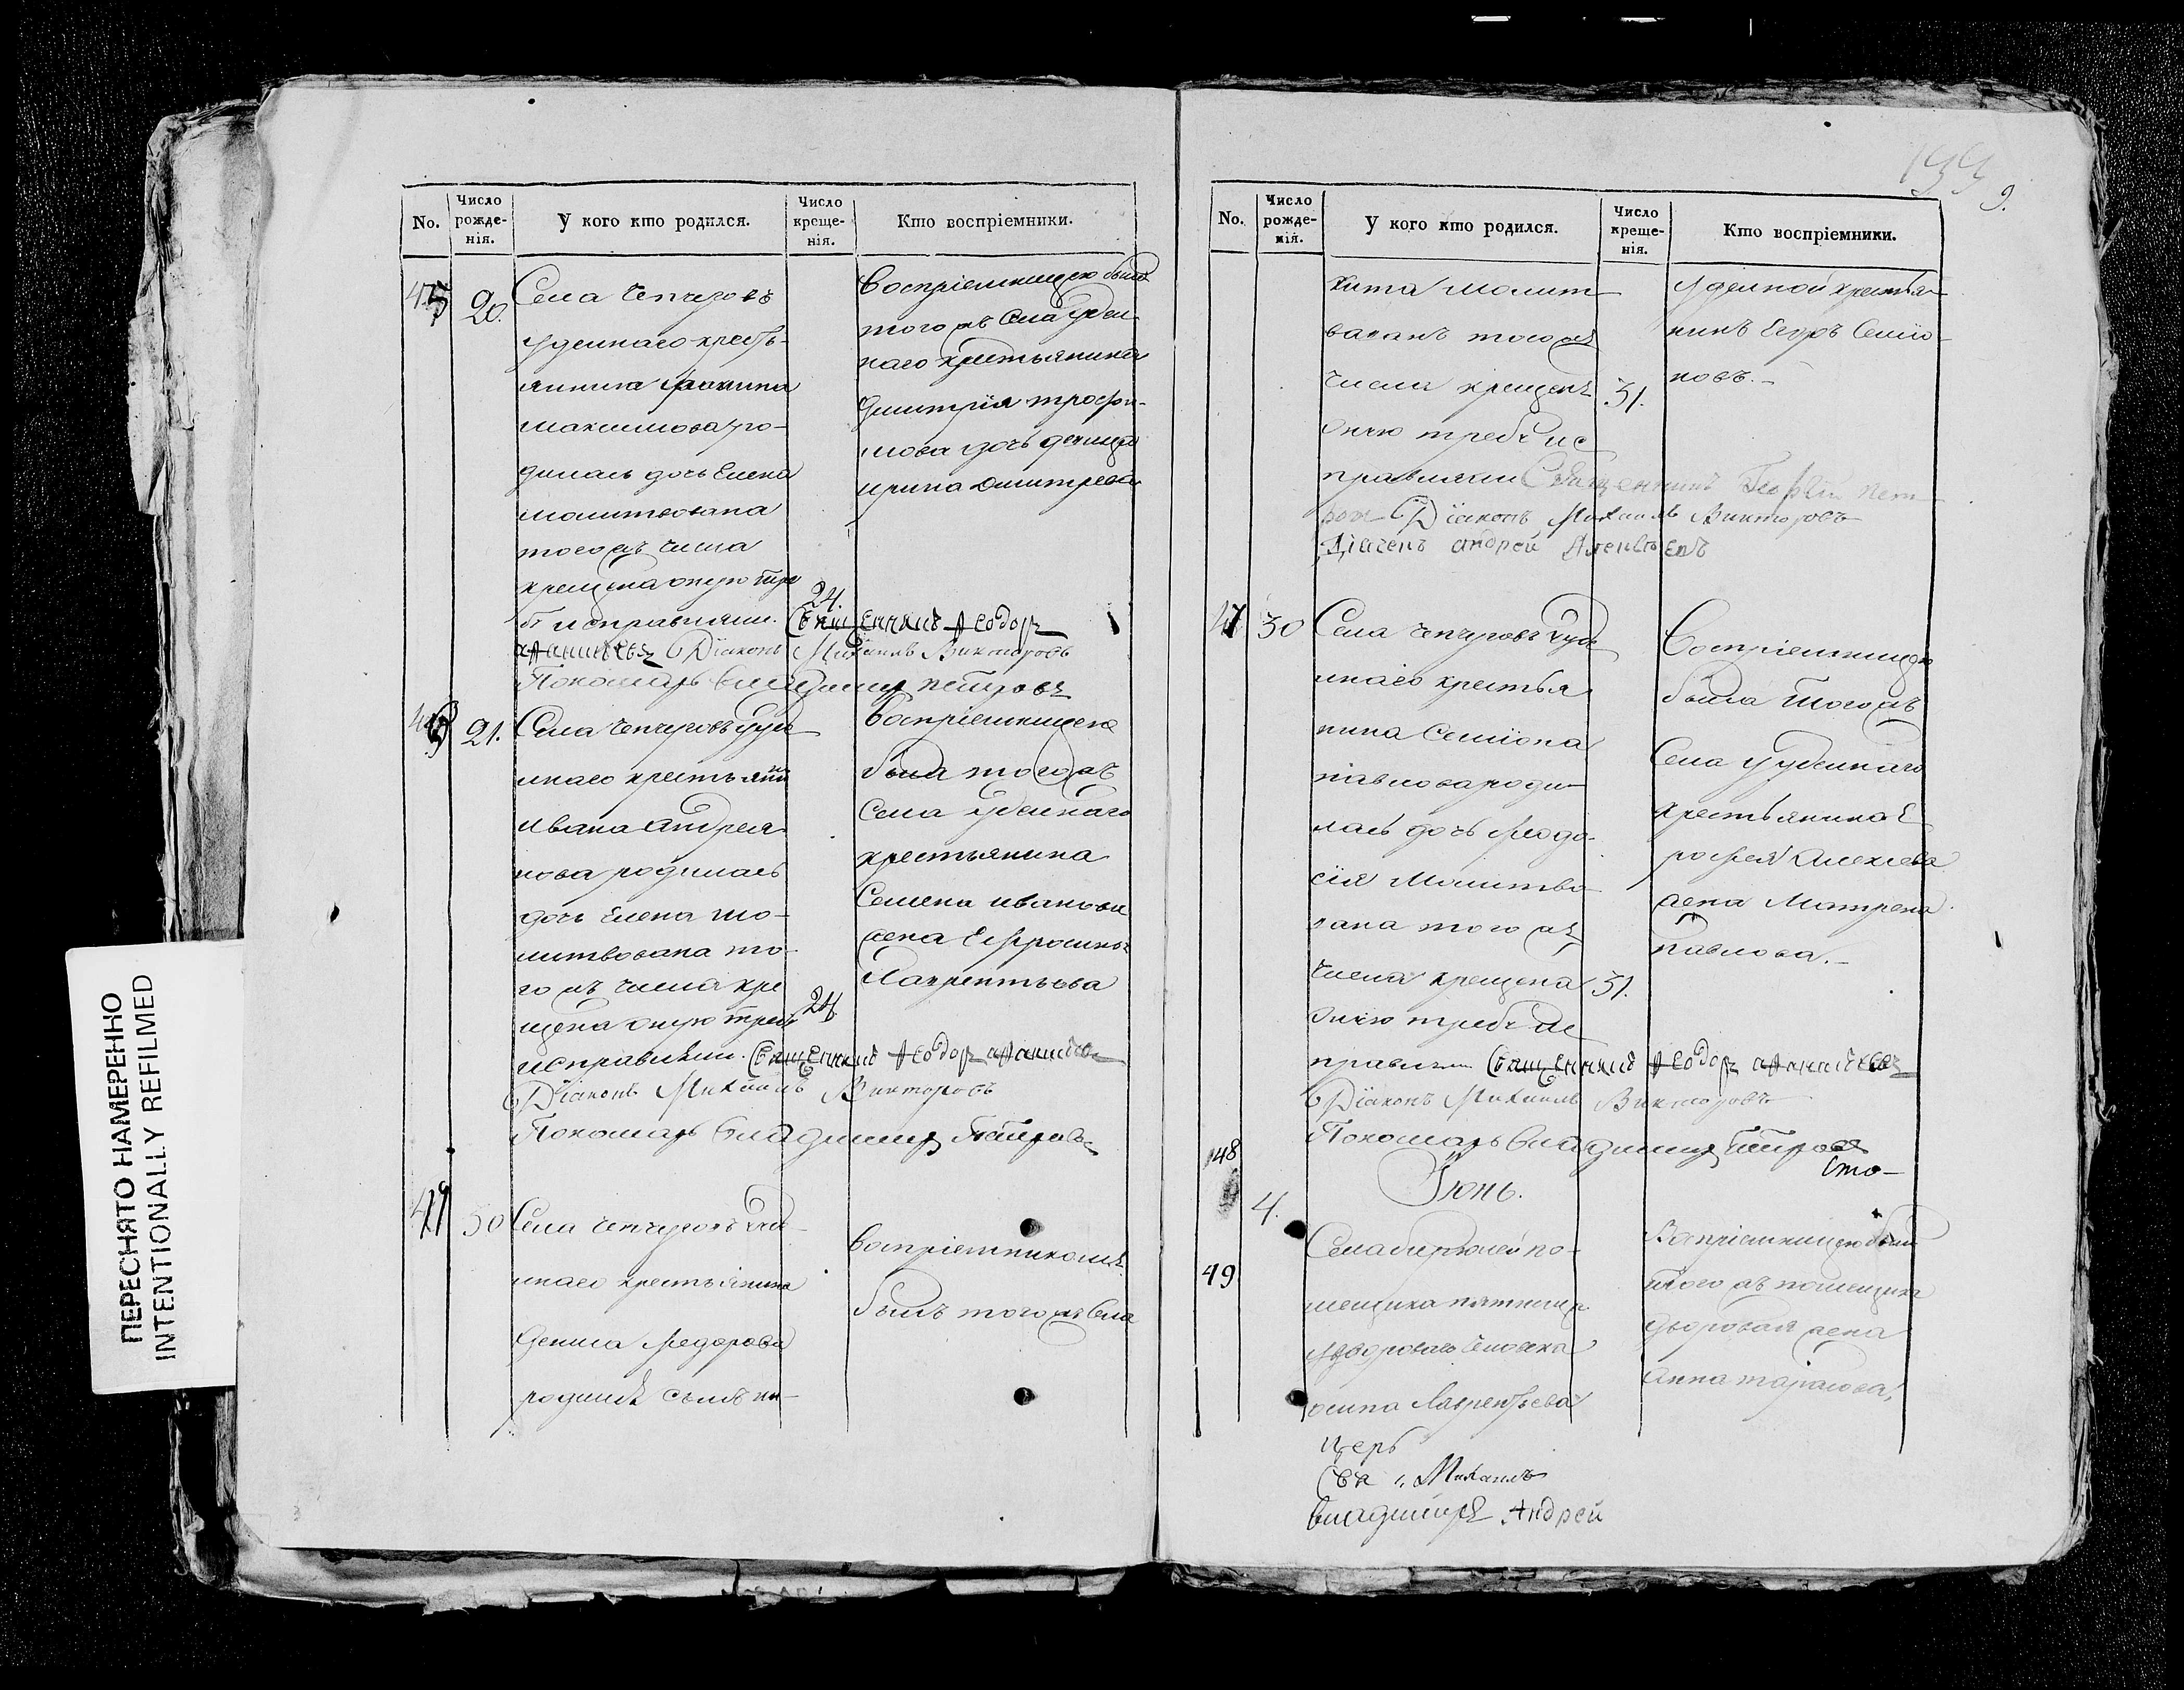 ПЕРЕСНЯТО НАМЕРЕННО
INTENTIONALLY REFILMED
No. Число рожде-нія. У кого кто родился. Число креще-нія. Кто воспріемники.
45 20.
Села Чепчуговъ
удельнаго кресть-
янина
Максимова ро-
дилась дочь Елена
молитвована
тогожъ числа
крещена оную треб
исправляли. 24.
Священникъ Ѳеодоръ
Діаконъ Михаилъ Викторовъ
Пономарь Владимиръ Петровъ
Воспріемницею была
того жъ Села удель-
наго крестьянина
Дмитрія Трофи-
мова дочь девица
Ирина Дмитрева
21. Села Чепчуговъ уде
льнаго крестьянин
Ивана Андрея
нова родилась
дочь Елена мо-
литвована то-
го жъ числа кре
щена оную треб 24
исправляли. Священникъ Ѳеодоръ
Діаконъ Михаилъ Викторовъ
Пономарь Владимиръ Петровъ
Воспріемницею
была тогожъ
Села удельнаго
крестьянина
Семена Иванова
жена Ефросинья
Лаврентьева
30 Села Чепчуговъ уде-
льнаго крестьянина
Дениса Федорова
родился сынъ ни-
Воспріемникомъ
былъ того жъ Села
199
9.
No. Число рожде-нія. У кого кто родился. Число креще-нія. Кто воспріемники.
кита молит
вованъ тогожъ
числа крещенъ 31.
оную требу ис
правляли Священникъ Пет
ровъ Діаконъ Михаилъ Викторовъ
Андрей
Удельной крестья-
нинъ Егоръ Семіо-
новъ.
47 30 Села Чепчуговъ уде
льнаго крестья
нина Семіона
Павлова роди
лась дочь Феодо
сія молитво
вана того жъ
числа крещена 31.
оную требу ис
правляли Священникъ Ѳеодоръ
Діаконъ Михаилъ Викторовъ
Пономарь Владимиръ Петровъ
Воспріемницею
была тогожъ
Села удельнаго
крестьянина Е
рофея Алексева
жена Матрена
Павлова.
48
Сто-
Іюнь.
4.
49
Села по-
мещика
двороваго человека
осипа Лаврентьева
Воспріемницею была
того жъ помещика
дворовая жена
Анна тарасова,
церь
Свя Михаилъ
Владимиръ Андрей